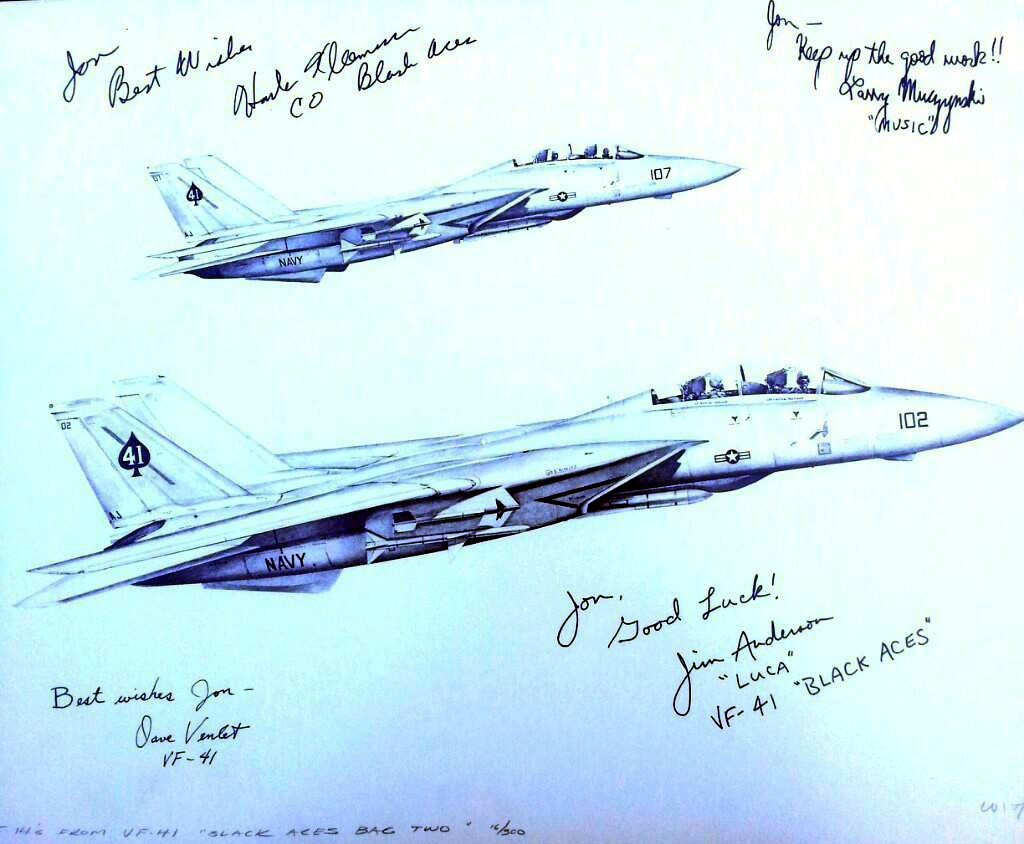 Jon
Best Wishes
Hank Kleemann
CO Black Aces
Jon –
Keep up the good work!!
Larry Muczynski
"MUSIC"
41
AJ
NAVY
107
02
41
AJ
NAVY
102
Jon,
Good Luck!
Jim Anderson
"LUCA"
VF-41 "BLACK ACES"
Best wishes Jon –
Dave Venlet
VF-41
14's FROM VF-41 "BLACK ACES BAG TWO" 16/300